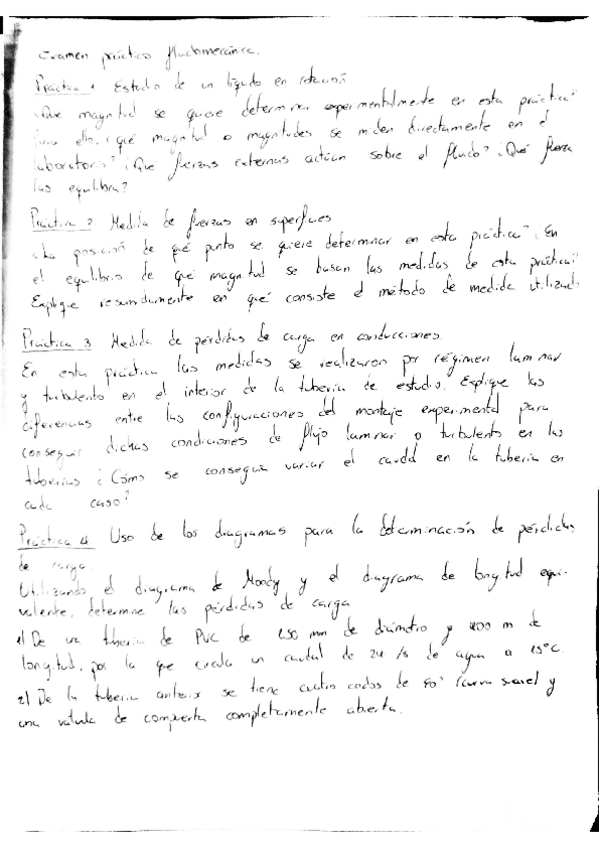 Examen práctico fluidomecánica.
Práctica 1 Estudio de un líquido en rotación
¿Que magnitud se quiere determinar experimentalmente en esta práctica?
Para ello, ¿qué magnitud o magnitudes se miden directamente en el
laboratorio? ¿Qué fuerzas externas actúan sobre el fluido? ¿Qué fuerza
las equilibra?
Práctica 2 Medida de fuerzas en superficies
¿La posición de qué punto se quiere determinar en esta práctica? ¿En
el equilibrio de qué magnitud se basan las medidas de esta práctica?
Explique resumidamente en qué consiste el método de medida utilizado
Práctica 3 Medida de pérdidas de carga en conducciones.
En esta práctica las medidas se realizaron por régimen laminar
y turbulento en el interior de la tubería de estudio. Explique las
diferencias entre las configuraciones del montaje experimental para
conseguir dichas condiciones de flujo laminar o turbulento en las
tuberías ¿Cómo se conseguía variar el caudal en la tubería en
cada caso?
Práctica 4 Uso de los diagramas para la determinación de pérdidas
de carga.
Utilizando el diagrama de Moody y el diagrama de longitud equi-
valente, determine las pérdidas de carga
1) De una tubería de PVC de 150 mm de diámetro y 400 m de
longitud, por la que circula un caudal de 24 l/s de agua a 15°C.
2) De la tubería anterior se tiene cuatro codos de 90° (curva suave) y
una válvula de compuerta completamente abierta.